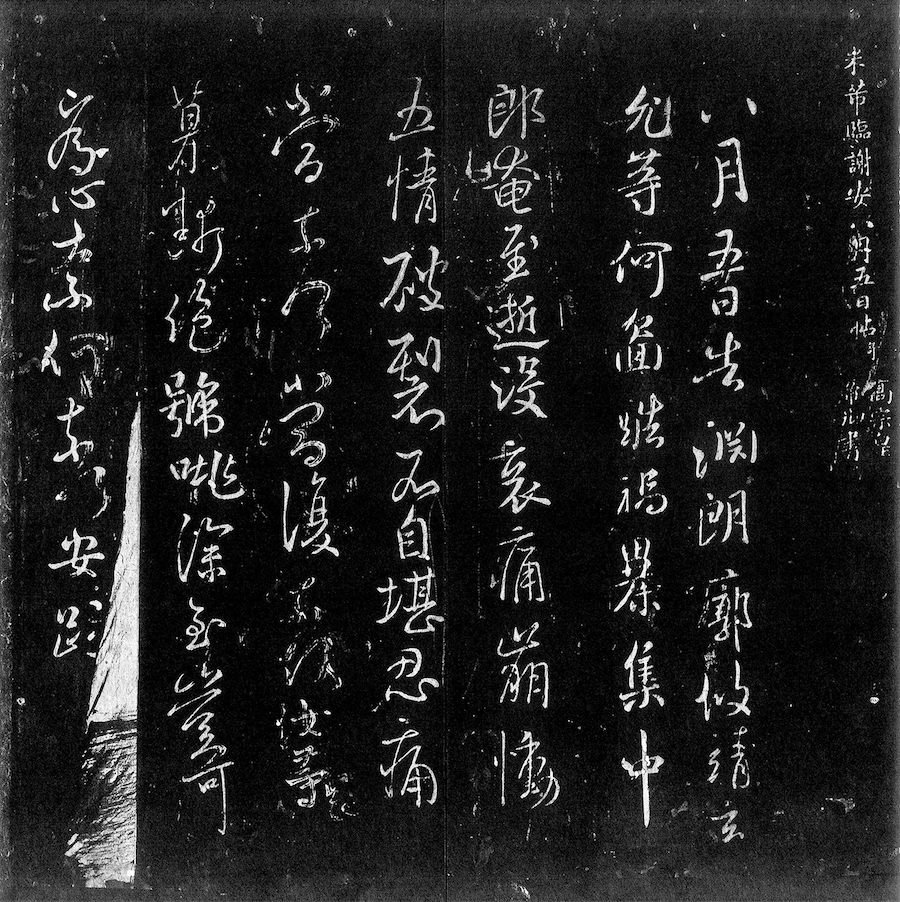 米芾臨謝安八月五日帖
八月五日告淵朗廓攸靖玄
允等何圖酷禍暴集中
郎奄至逝沒哀痛崩慟
五情破裂不自堪忍痛
當奈何當復奈何汝等
慕斷絕號咷深至豈可
為心奈何奈何安疏